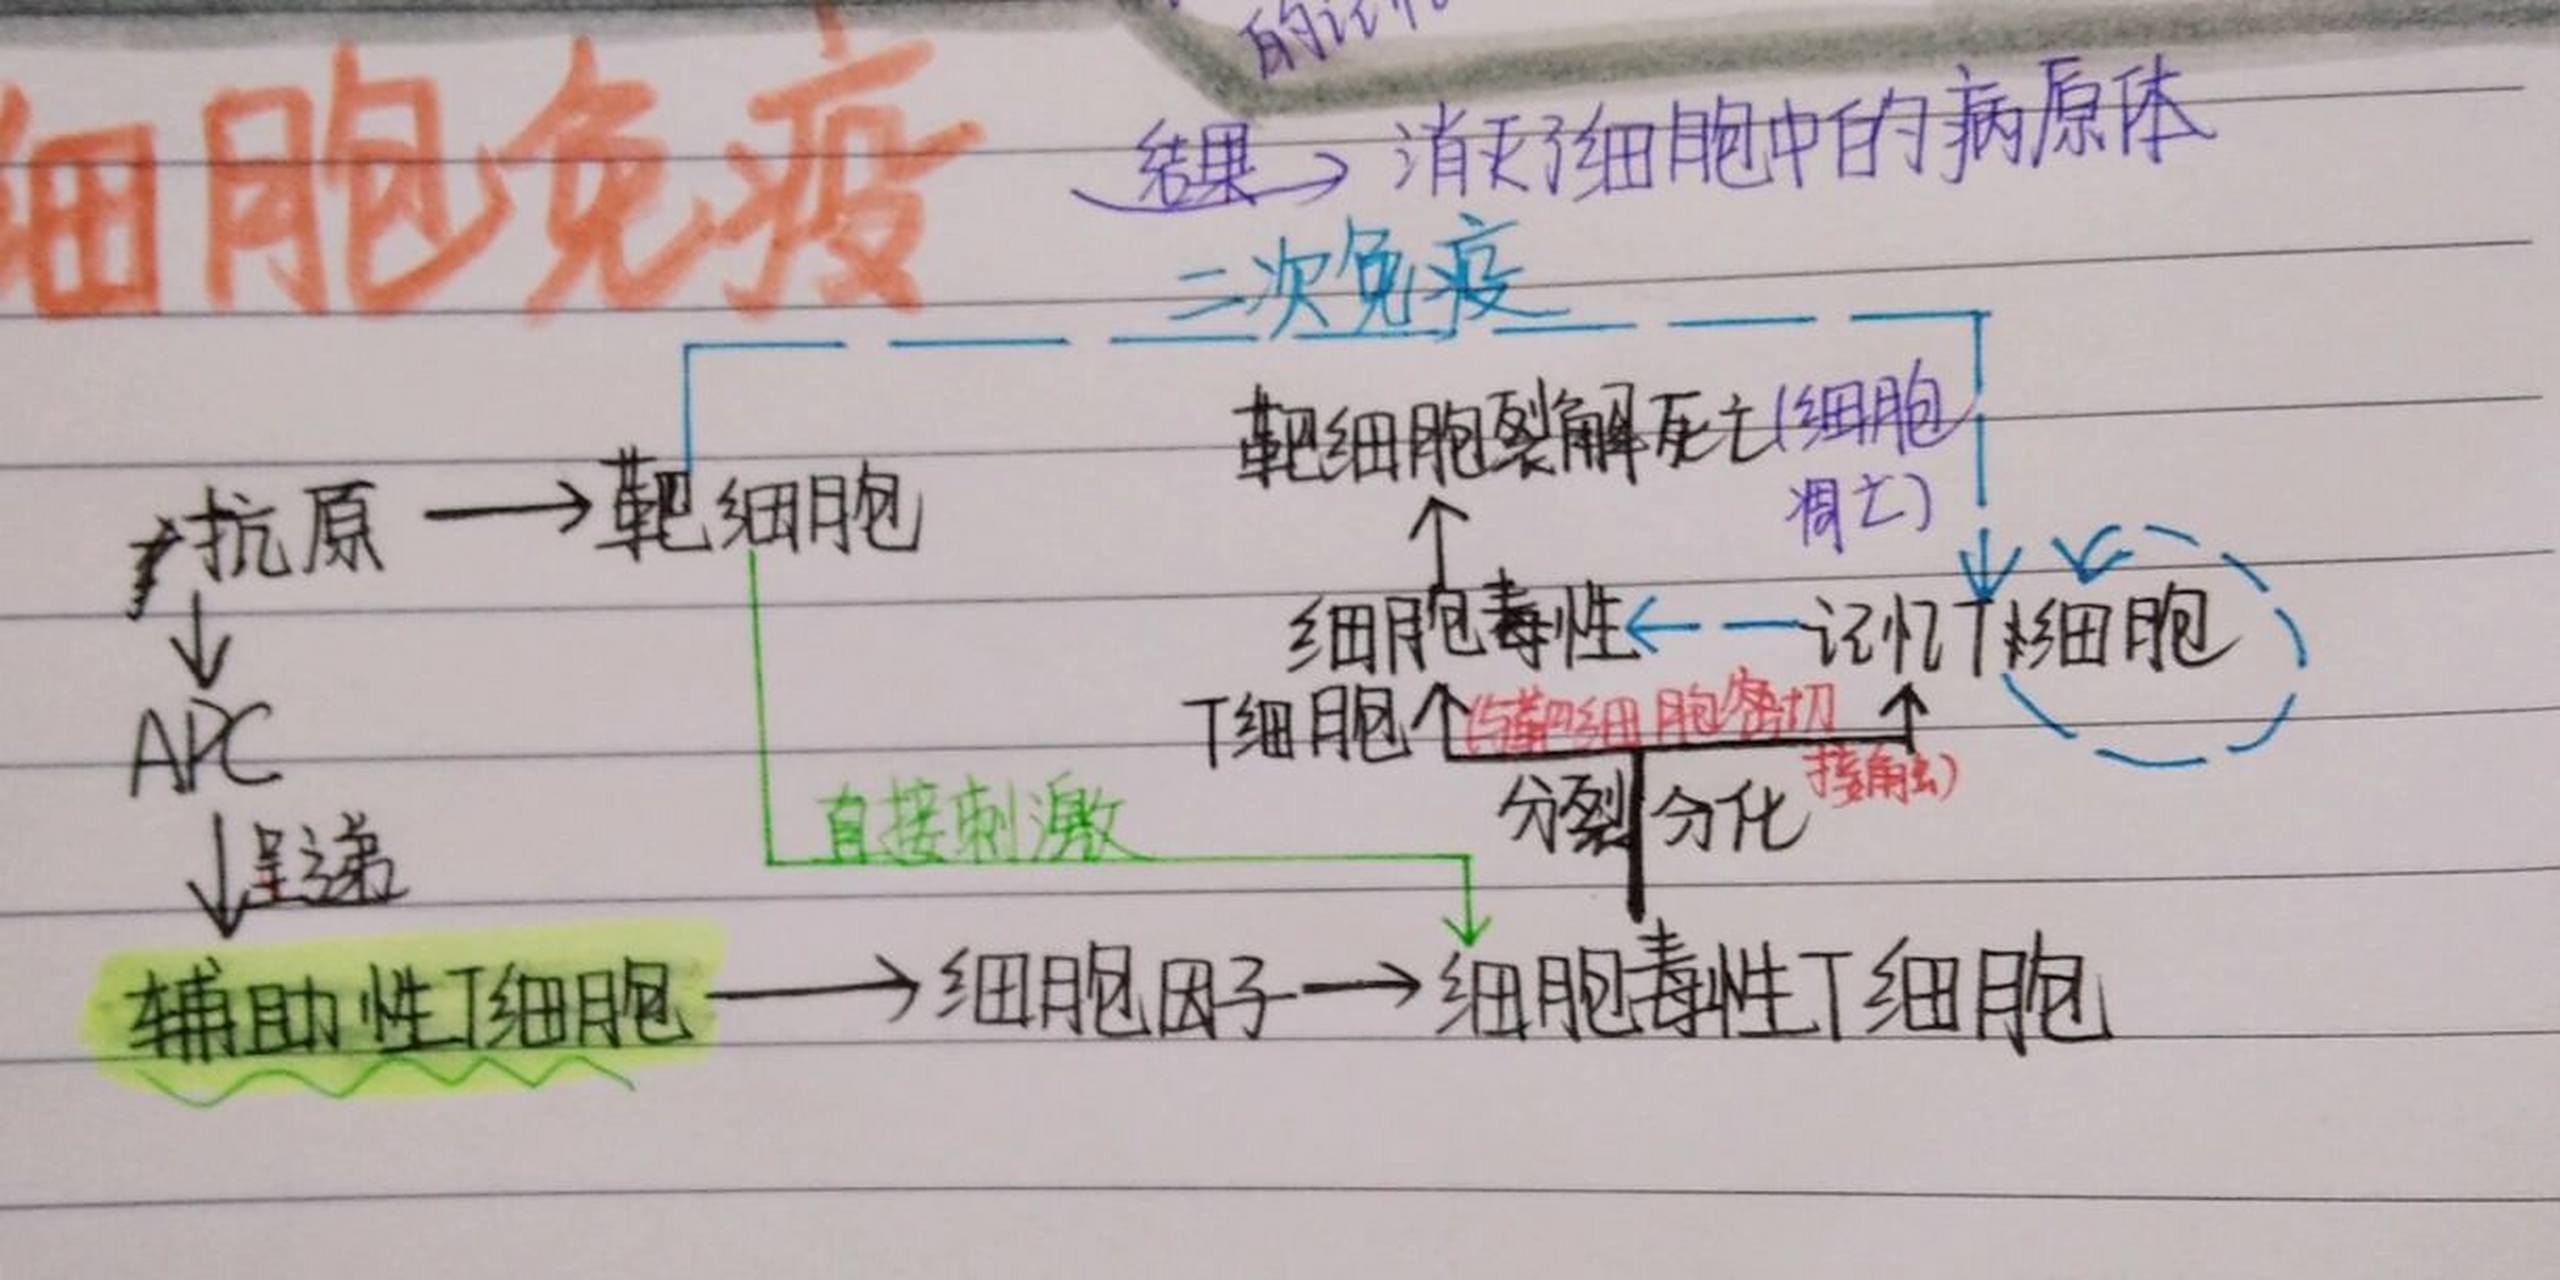 的记忆
细胞免疫
结果 → 消灭了细胞中的病原体
二次免疫
靶细胞裂解死亡(细胞
凋亡)
抗原 → 靶细胞
细胞毒性 ← 记忆T细胞
T细胞 (与靶细胞密切
接触)
APC
呈递
直接刺激
分裂 分化
辅助性T细胞 → 细胞因子 → 细胞毒性T细胞